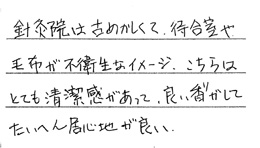 針灸院は古めかしくて、待合室や
毛布が不衛生なイメージ、こちらは
とても清潔感があって、良い香がして
たいへん居心地が良い、